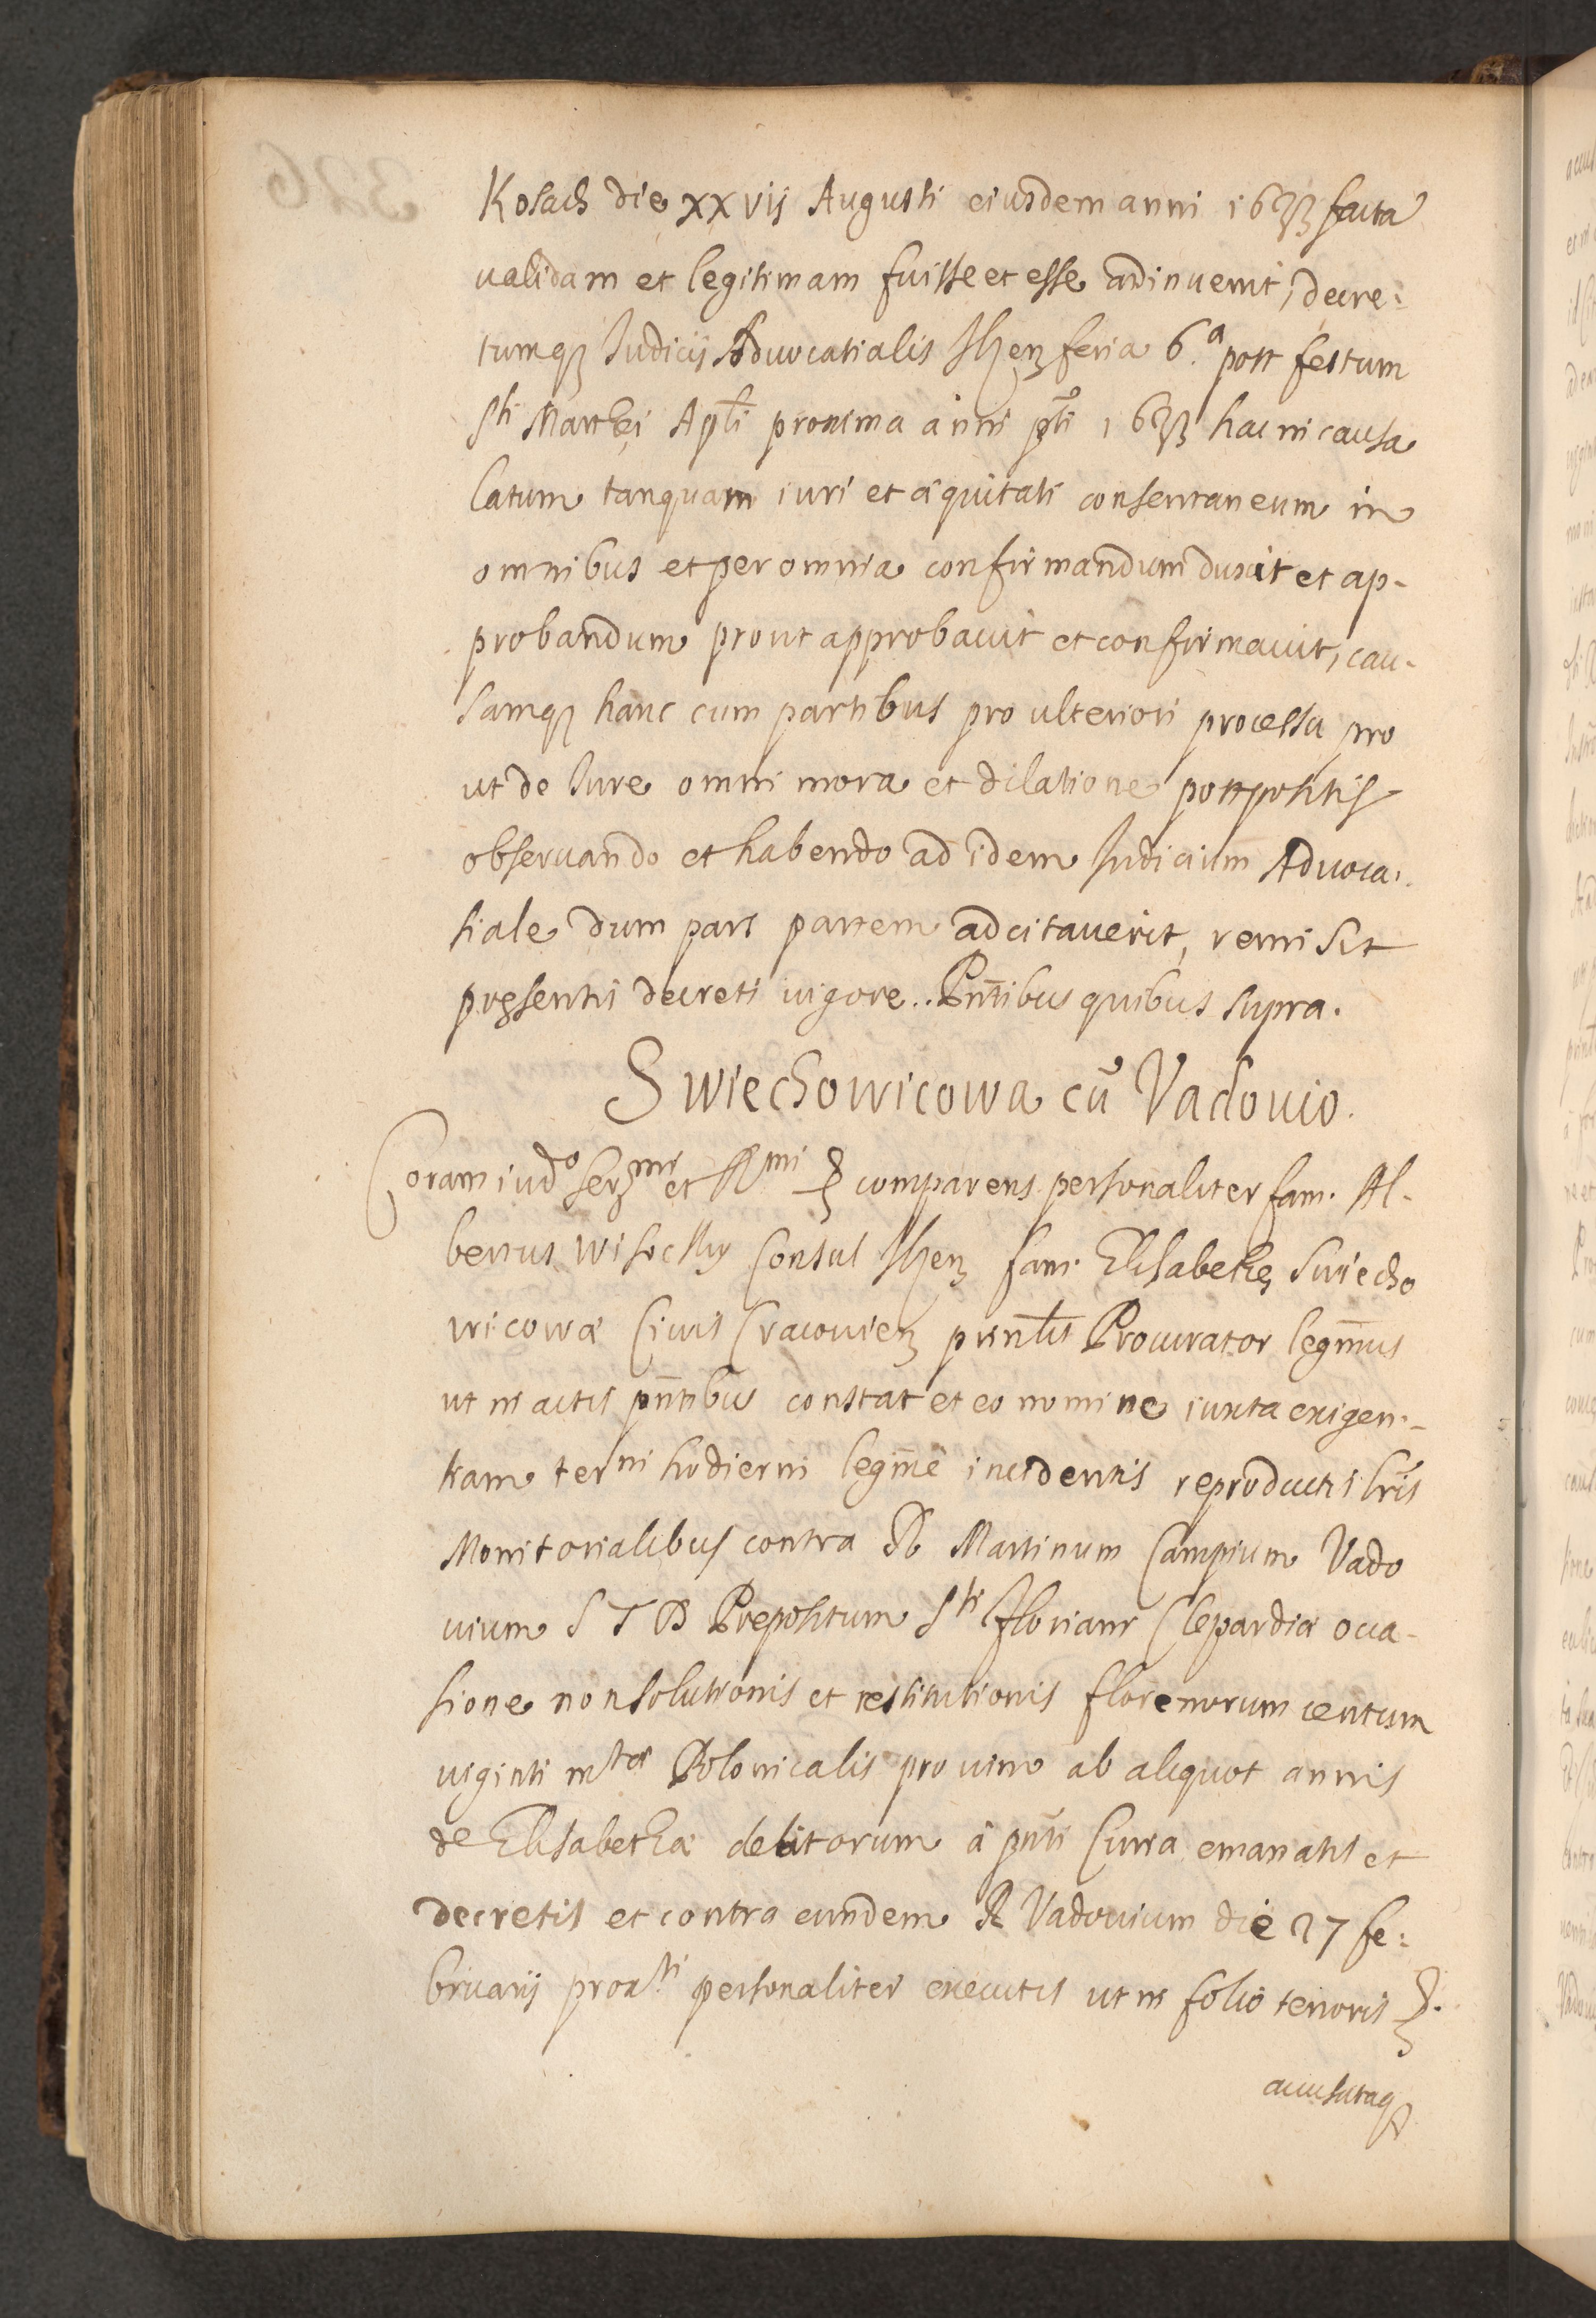 Kosach die xxvij Augusti eiusdem anni 1633 facta
validam et legitimam fuisse et esse adinuenit, decre:
tumq3 Iudicij Aduocatialis feria 6.a post festum
Sti Matthęi Apli proxima anni pti 1633 hac in causa
latum tanquam iuri et æquitati consentaneum in
omnibus et per omnia confirmandum duxit et ap-
probandum prout approbauit et confirmauit, cau-
samq3 hanc cum partibus pro ulteriori processu pro
ut de Iure omni mora et dilatione postpositis
obseruando et habendo ad idem Iudicium Aduoca:
tiale dum pars partem adcitauerit, remisit
pręsentis decreti uigore.. Pntibus quibus supra.
Swiechowicowa cū Vadouio.
Coram iudo Sermi et Rmi comparens personaliter fam. Al-
bertus Wisocky Consul fam. Elisabethę Swiecho
wicowæ Ciuis Cracouien3 prinlis Procurator legimus
ut in actis pntibus constat et eo nomine iuxta exigen-
tiam terni hodierni legime incidentis reproductis lris
Monitorialibus contra R Martinum Campium Vado
uium S T D Prepositum Sti Floriani Clepardiæ occa-
sione non solutionis et restitutionis florenorum centum
uiginti mtæ Polonicalis pro uino ab aliquot annis
de Elisabetha debitorum a pnti Curia emanatis et
decretis et contra eundem R Vadouium die 27 fe:
bruarij proxti personaliter executis ut in folio tenoris
accusataq3